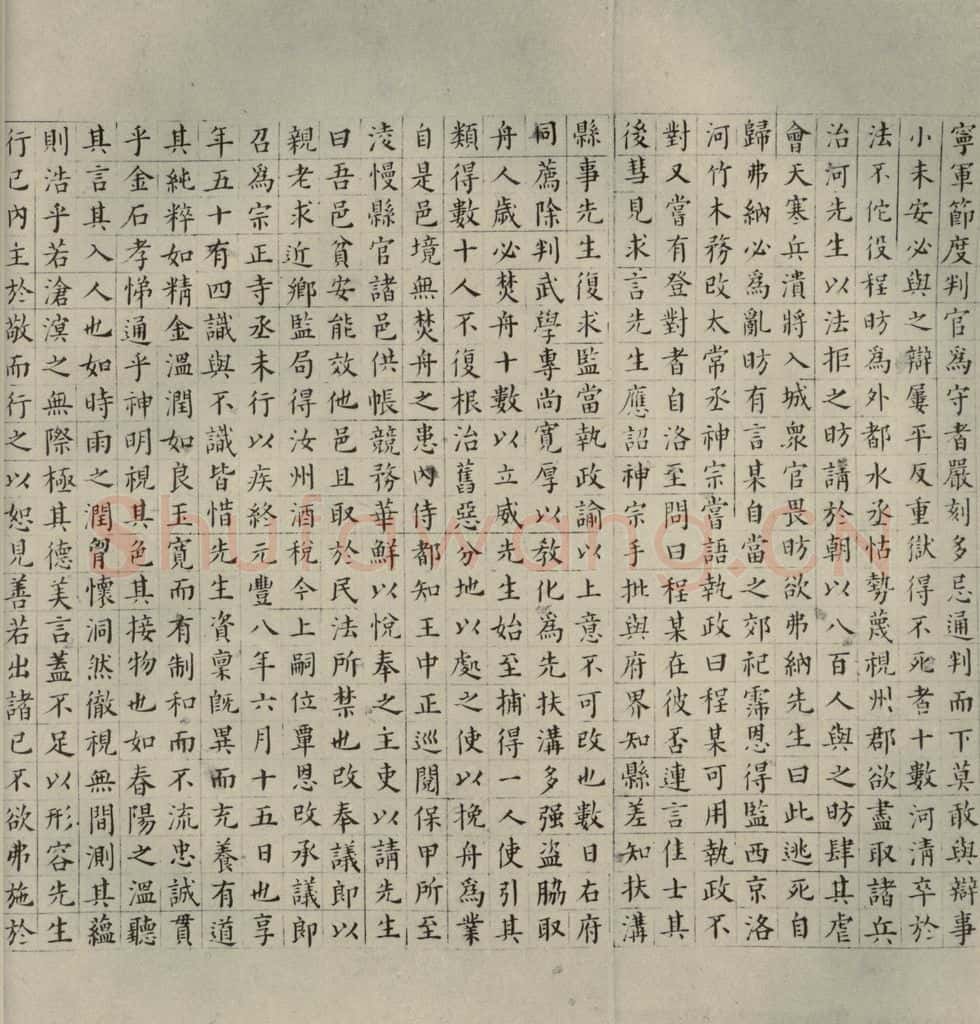 寧軍節度判官為守者嚴刻多忌通判而下莫敢與辯事
小未安必與之辯屢平反重獄得不死者十數河清卒於
法不佗役程昉為外都水丞怙勢蔑視州郡欲盡取諸兵
治河先生以法拒之昉講於朝以八百人與之昉肆其虐
會天寒兵潰將入城衆官畏昉欲弗納先生曰此逃死自
歸弗納必為亂昉有言某自當之郊祀霈恩得監西京洛
河竹木務改太常丞神宗嘗語執政曰程某可用執政不
對又嘗有登對者自洛至問曰程某在彼否連言佳士其
後彗見求言先生應詔神宗手批與府界知縣差知扶溝
縣事先生復求監當執政諭以上意不可改也數日右府
同薦除判武學專尚寬厚以教化為先扶溝多强盜脇取
舟人歲必焚舟十數以立威先生始至捕得一人使引其
類得數十人不復根治舊惡分地以處之使以挽舟為業
自是邑境無焚舟之患內侍都知王中正巡閱保甲所至
淩慢縣官諸邑供帳競務華鮮以悅奉之主吏以請先生
曰吾邑貧安能效他邑且取於民法所禁也改奉議郎以
親老求近鄉監局得汝州酒稅今上嗣位覃恩改承議郎
召為宗正寺丞未行以疾終元豐八年六月十五日也享
年五十有四識與不識皆惜先生資稟既異而充養有道
其純粹如精金溫潤如良玉寬而有制和而不流忠誠貫
乎金石孝悌通乎神明視其色其接物也如春陽之溫聽
其言其入人也如時雨之潤胷懷洞然徹視無間測其蘊
則浩乎若滄溟之無際極其德美言蓋不足以形容先生
行已內主於敬而行之以恕見善若出諸已不欲弗施於
Shufawang.CN